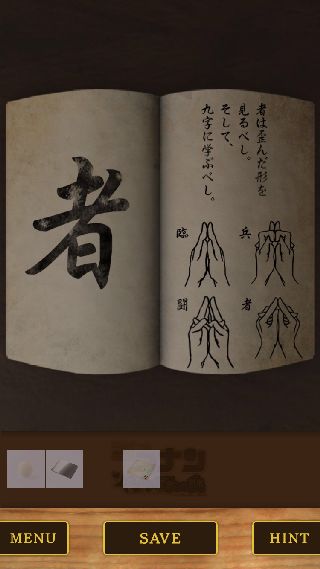 者
者は歪んだ形を
見るべし。
そして、
九字に学ぶべし。
兵
臨
者
闘
MENU
SAVE
HINT